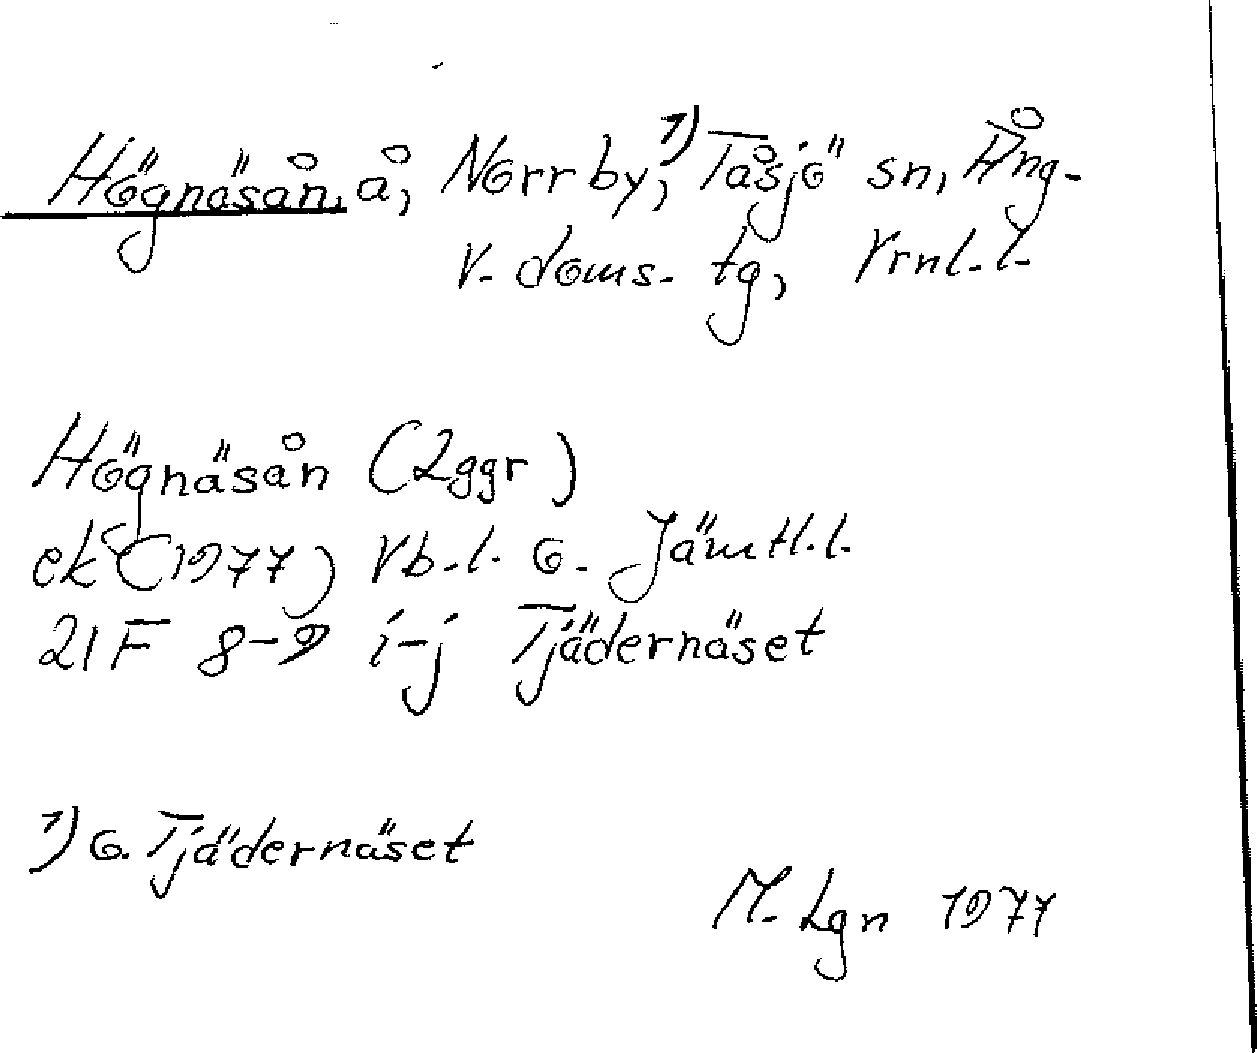 Högnäsån, å, Norrby,¹⁾ Tåsjö sn, Ång.
V. doms. tg, Vrnl. l.
Högnäsån (2ggr)
ek (1977) Vb. l. o. Jämtl. l.
21F 8-9 i-j Tjädernäset
1) o. Tjädernäset
M. Lgn 1977